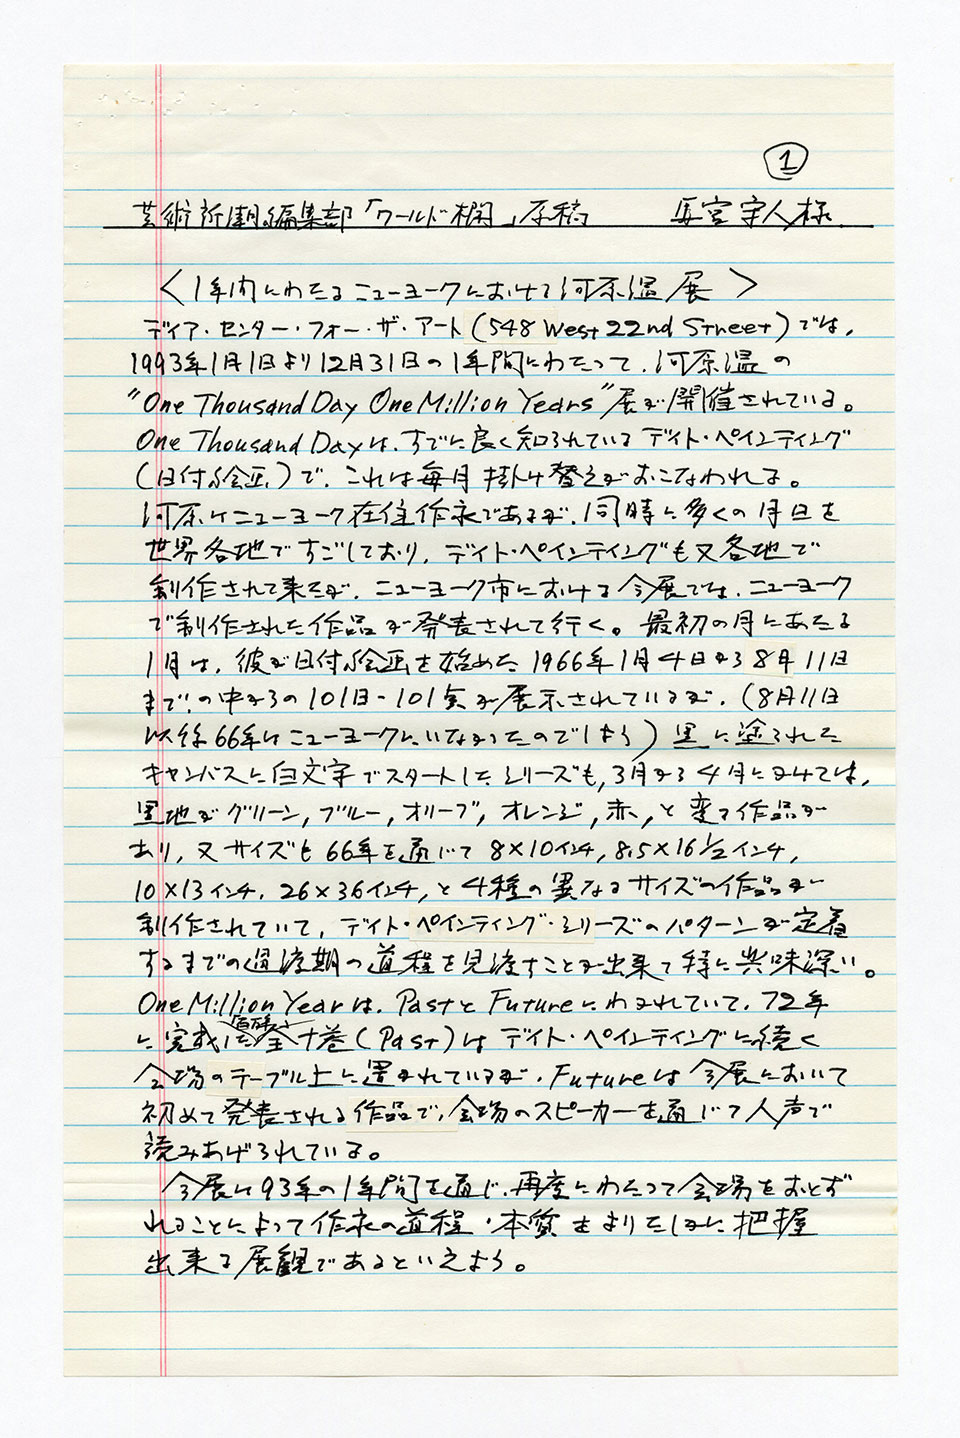 ①
芸術新潮編集部「ワールド欄」原稿 宮宇人様
〈1年間にわたるニューヨークにおける河原温展〉
ディア・センター・フォー・ザ・アート(548 West 22nd Street)では、
1993年1月1日より12月31日の1年間にわたって、河原温の
"One Thousand Day One Million Years"展が開催されている。
One Thousand Dayは、すでに良く知られているデイト・ペインティング
(日付絵画)で、これは毎月掛け替えがおこなわれる。
河原はニューヨーク在住作家であるが、同時に多くの月日を
世界各地ですごしており、デイト・ペインティングも又各地で
制作されて来たが、ニューヨーク市における今展では、ニューヨーク
で制作された作品が発表されて行く。最初の月にあたる
1月は、彼が日付絵画を始めた1966年1月4日から8月11日
までの中からの101日-101点が展示されているが、(8月11日
以後66年はニューヨークにいなかったのでしょう)黒に塗られた
キャンバスに白文字でスタートしたシリーズも、3月から4月にかけては、
黒地がグリーン, ブルー, オリーブ, オレンジ, 赤, と変る作品が
あり、又サイズも66年を通じて8×10インチ, 8.5×16½インチ,
10×13インチ, 26×36インチ, と4種の異なるサイズの作品が
制作されていて、デイト・ペインティング・シリーズのパターンが定着
するまでの過渡期の道程を見渡すことが出来て特に興味深い。
One Million Yearは、PastとFutureにわかれていて、72年
に完成した全十巻(Past)はデイト・ペインティングに続く
会場のテーブル上に置かれているが、Futureは今展において
初めて発表される作品で、会場のスピーカーを通じて人声で
読みあげられている。
今展は93年の1年間を通じ、再度にわたって会場をおとず
れることによって作家の道程・本質をよりたしかに把握
出来る展観であるといえよう。